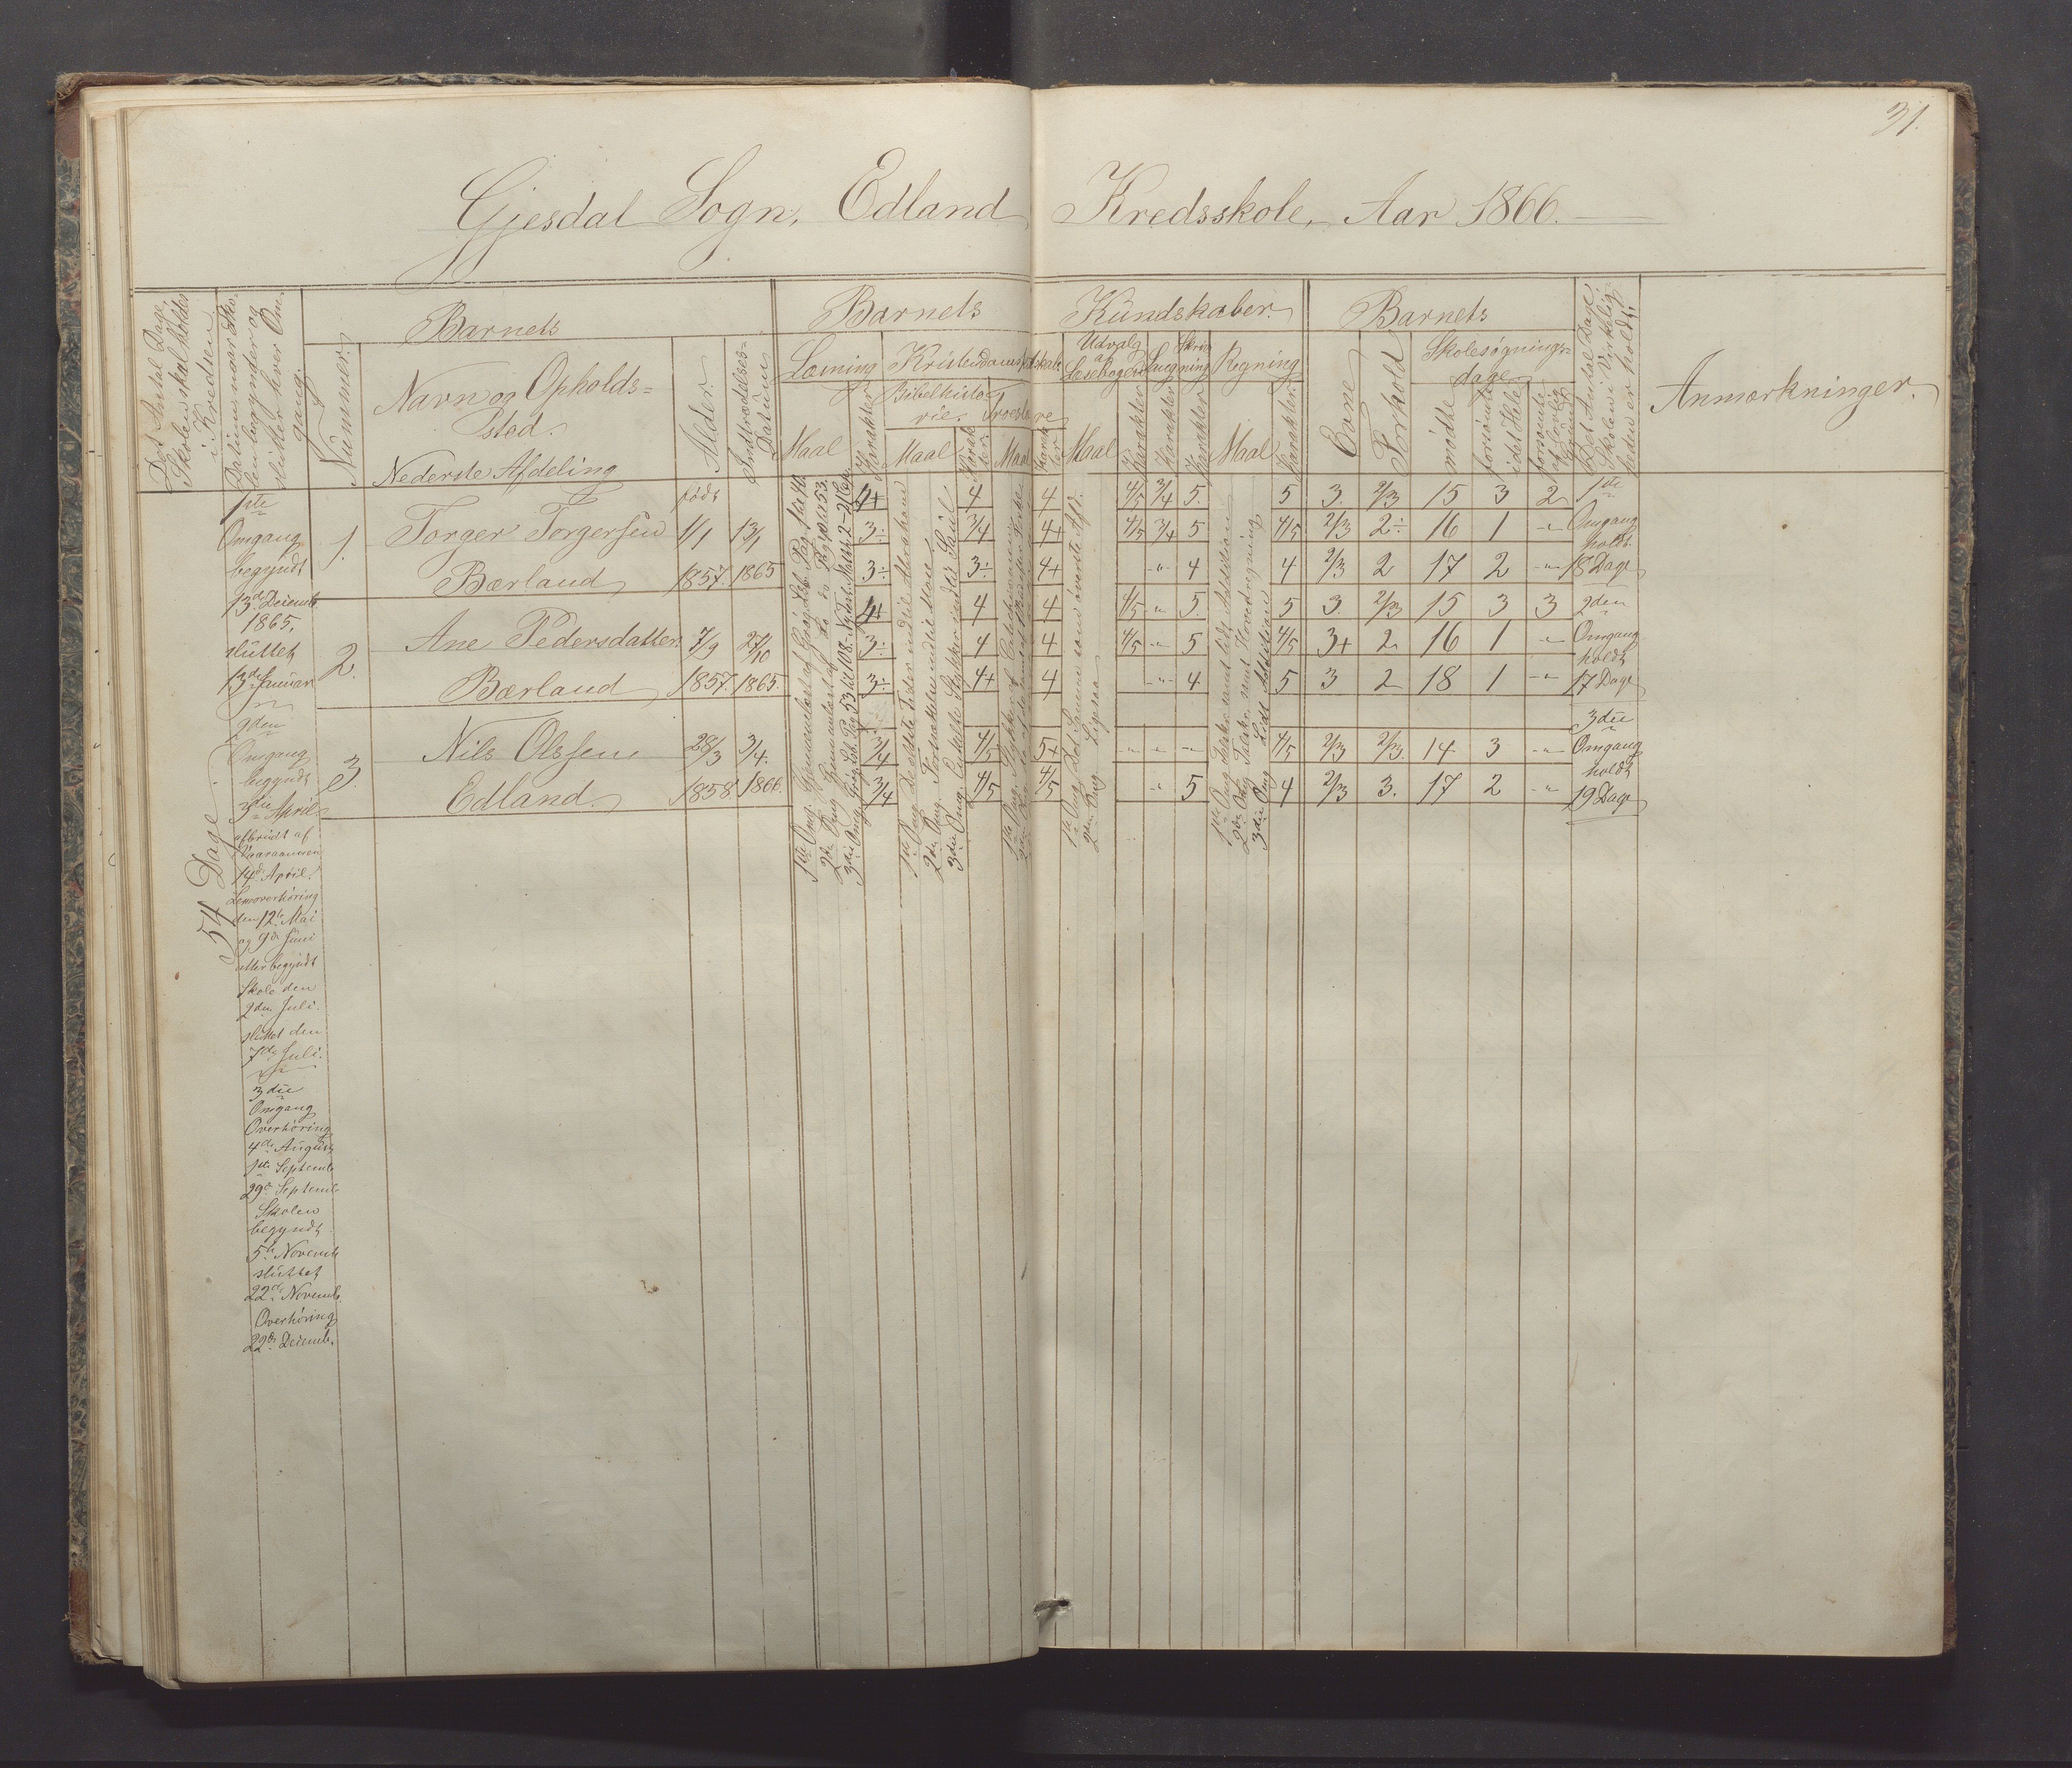 31.
Gjesdal Sogn, Edland Kredsskole, Aar 1866.
Det Antal Dage
Skolen skal holdes
i Kredsen
Datum naar Sko-
len begynder og
slutter hver Om-
gang.
Nummer.
Barnets
Navn og Opholds-
sted.
Nederste Afdeling
Alder.
født
Indtrædelses-
Datum
Barnets Kundskaber.
Læsning
Maal
Karakter
Kristendomskundskab
Bibelhisto-
rie.
Maal
Karak-
ter.
Troeslære
Maal
Karak-
ter
Udvalg
af
Læsebogen
Maal
Karakter
Sang
Karakter
Skriv-
ning
Karakter
Regning
Maal
Karakter.
Barnets
Evne
Forhold
Skolesøgnings-
dage
mødte
forsømte
i det Hele
forsømte
af lovlig
Grund
Det Antal Dage
Skolen i Virkelig-
heden er holdt.
Anmærkninger.
54 Dage
1ste
Omgang
begyndt
13de Decemb.
1865,
sluttet
13de Januar
2den
Omgang
begyndt
3die April
afbrudt af
Vaaraannen
14de April.
Læseoverhøring
den 12te Mai
og 9de Juni
atter begyndt
Skole den
2den Juli.
sluttet den
7de Juli.
3die
Omgang
Overhøring
4de August
1ste Septemb.
29de Septemb.
Skolen
begyndt
5te Novemb.
sluttet
22de Novemb.
Overhøring
22de Decemb.
1. Torger Torgersen 1/1 13/1
Bærland 1857. 1865
4+ 4 4 4/5 3/4 5. 5 3. 2/3 15 3 2
3÷ 3/4 4+ 4/5 3/4 5 4/5 2/3 2÷ 16 1 -"-
3÷ 3÷ 4+ -"- 4 4 2/3 2 17 2 -"-
2. Ane Pedersdatter 7/9 27/10
Bærland 1857. 1865.
4+ 4 4 4/5 -"- 5. 5 3. 2/3 15 3 3
3÷ 4 4 4/5 -"- 5 4/5 3+ 2 16 1 -"-
3÷ 4+ 4 -"- 4 5 3 2 18 1 -"-
3. Nils Olssen 28/3 3/4.
Edland. 1858 1866.
3/4 4/5 5+ -"- -"- -"- 4/5 2/3 2/3. 14 3 -"-
3/4 4/5 4/5 -"- 5 4 2/3 3. 17 2 -"-
1ste Omg.
2den Omg.
3die Omg.
1ste Omg. De eldste Tider indtil Abraham
2den Omg. Fortsættelse indtil Mose.
3die Omg. Enkelte Stykker indtil Saul
1ste Omg.
2den Omg.
1ste Omg. Det Samme som øverste Afd.
2den Omg. Ligesaa
1ste Omg. Addition
2den Omg. Hovedregning
3die Omg. Lidt Addition
1ste
Omgang
holdt
18 Dage
2den
Omgang
holdt
17 Dage
3die
Omgang
holdt
19 Dage